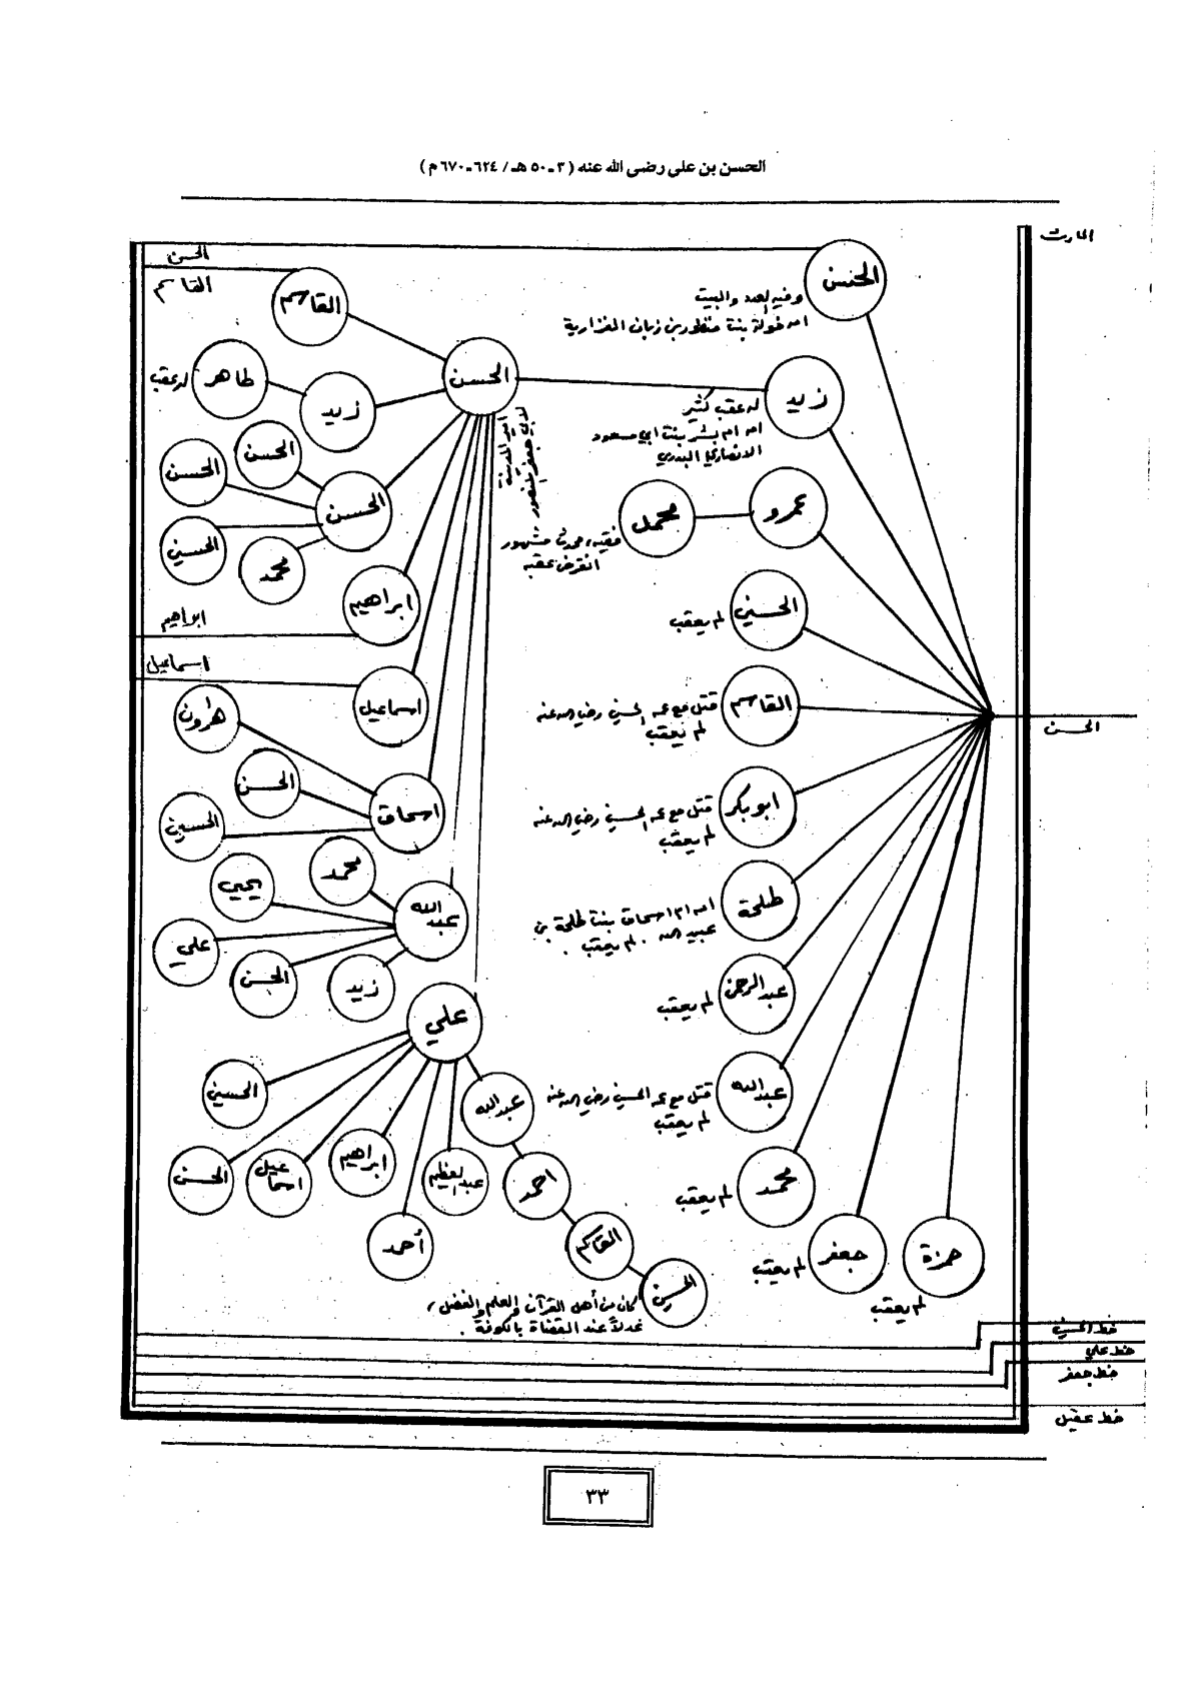 الحسن بن على رضى الله عنه ( ٣ ـ ٥٠ هـ / ٦٢٤ ـ ٦٧٠ م )
الحارث
الحسن
الحسن
وفيه العدد والبيت
امه خولة بنت منظور بن زبان الفزارية
زيد
له عقب كثير
امه ام بشر بنت ابي مسعود
الانصاري البدري
عمرو
محمد
فقيه، محدث مشهور
انقرض عقبه
الحسين
لم يعقب
القاسم
قتل مع عمه الحسين رضي الله عنه
لم يعقب
ابو بكر
قتل مع عمه الحسين رضي الله عنه
لم يعقب
طلحة
امه ام اسحاق بنت طلحة بن
عبيد الله . لم يعقب .
عبد الرحمن
لم يعقب
عبد الله
قتل مع عمه الحسين رضي الله عنه
لم يعقب
محمد
لم يعقب
جعفر
لم يعقب
حمزة
لم يعقب
الحسن
امير المدينة
لابي جعفر المنصور
الحسن
القاسم
القاسم
زيد
طاهر
له عقب
الحسن
الحسن
الحسن
الحسين
محمد
ابراهيم
ابراهيم
اسماعيل
اسماعيل
اسحاق
هرون
الحسن
الحسين
عبد الله
محمد
يحيى
علي
الحسن
زيد
علي
الحسين
الحسن
اسماعيل
ابراهيم
أحمد
عبد العظيم
عبد الله
احمد
القاسم
الحسين
كان من أهل القرآن والعلم والفضل ،
عدلاً عند القضاة بالكوفة .
خط الحسين
خط علي
خط جعفر
خط عقيل
٣٣